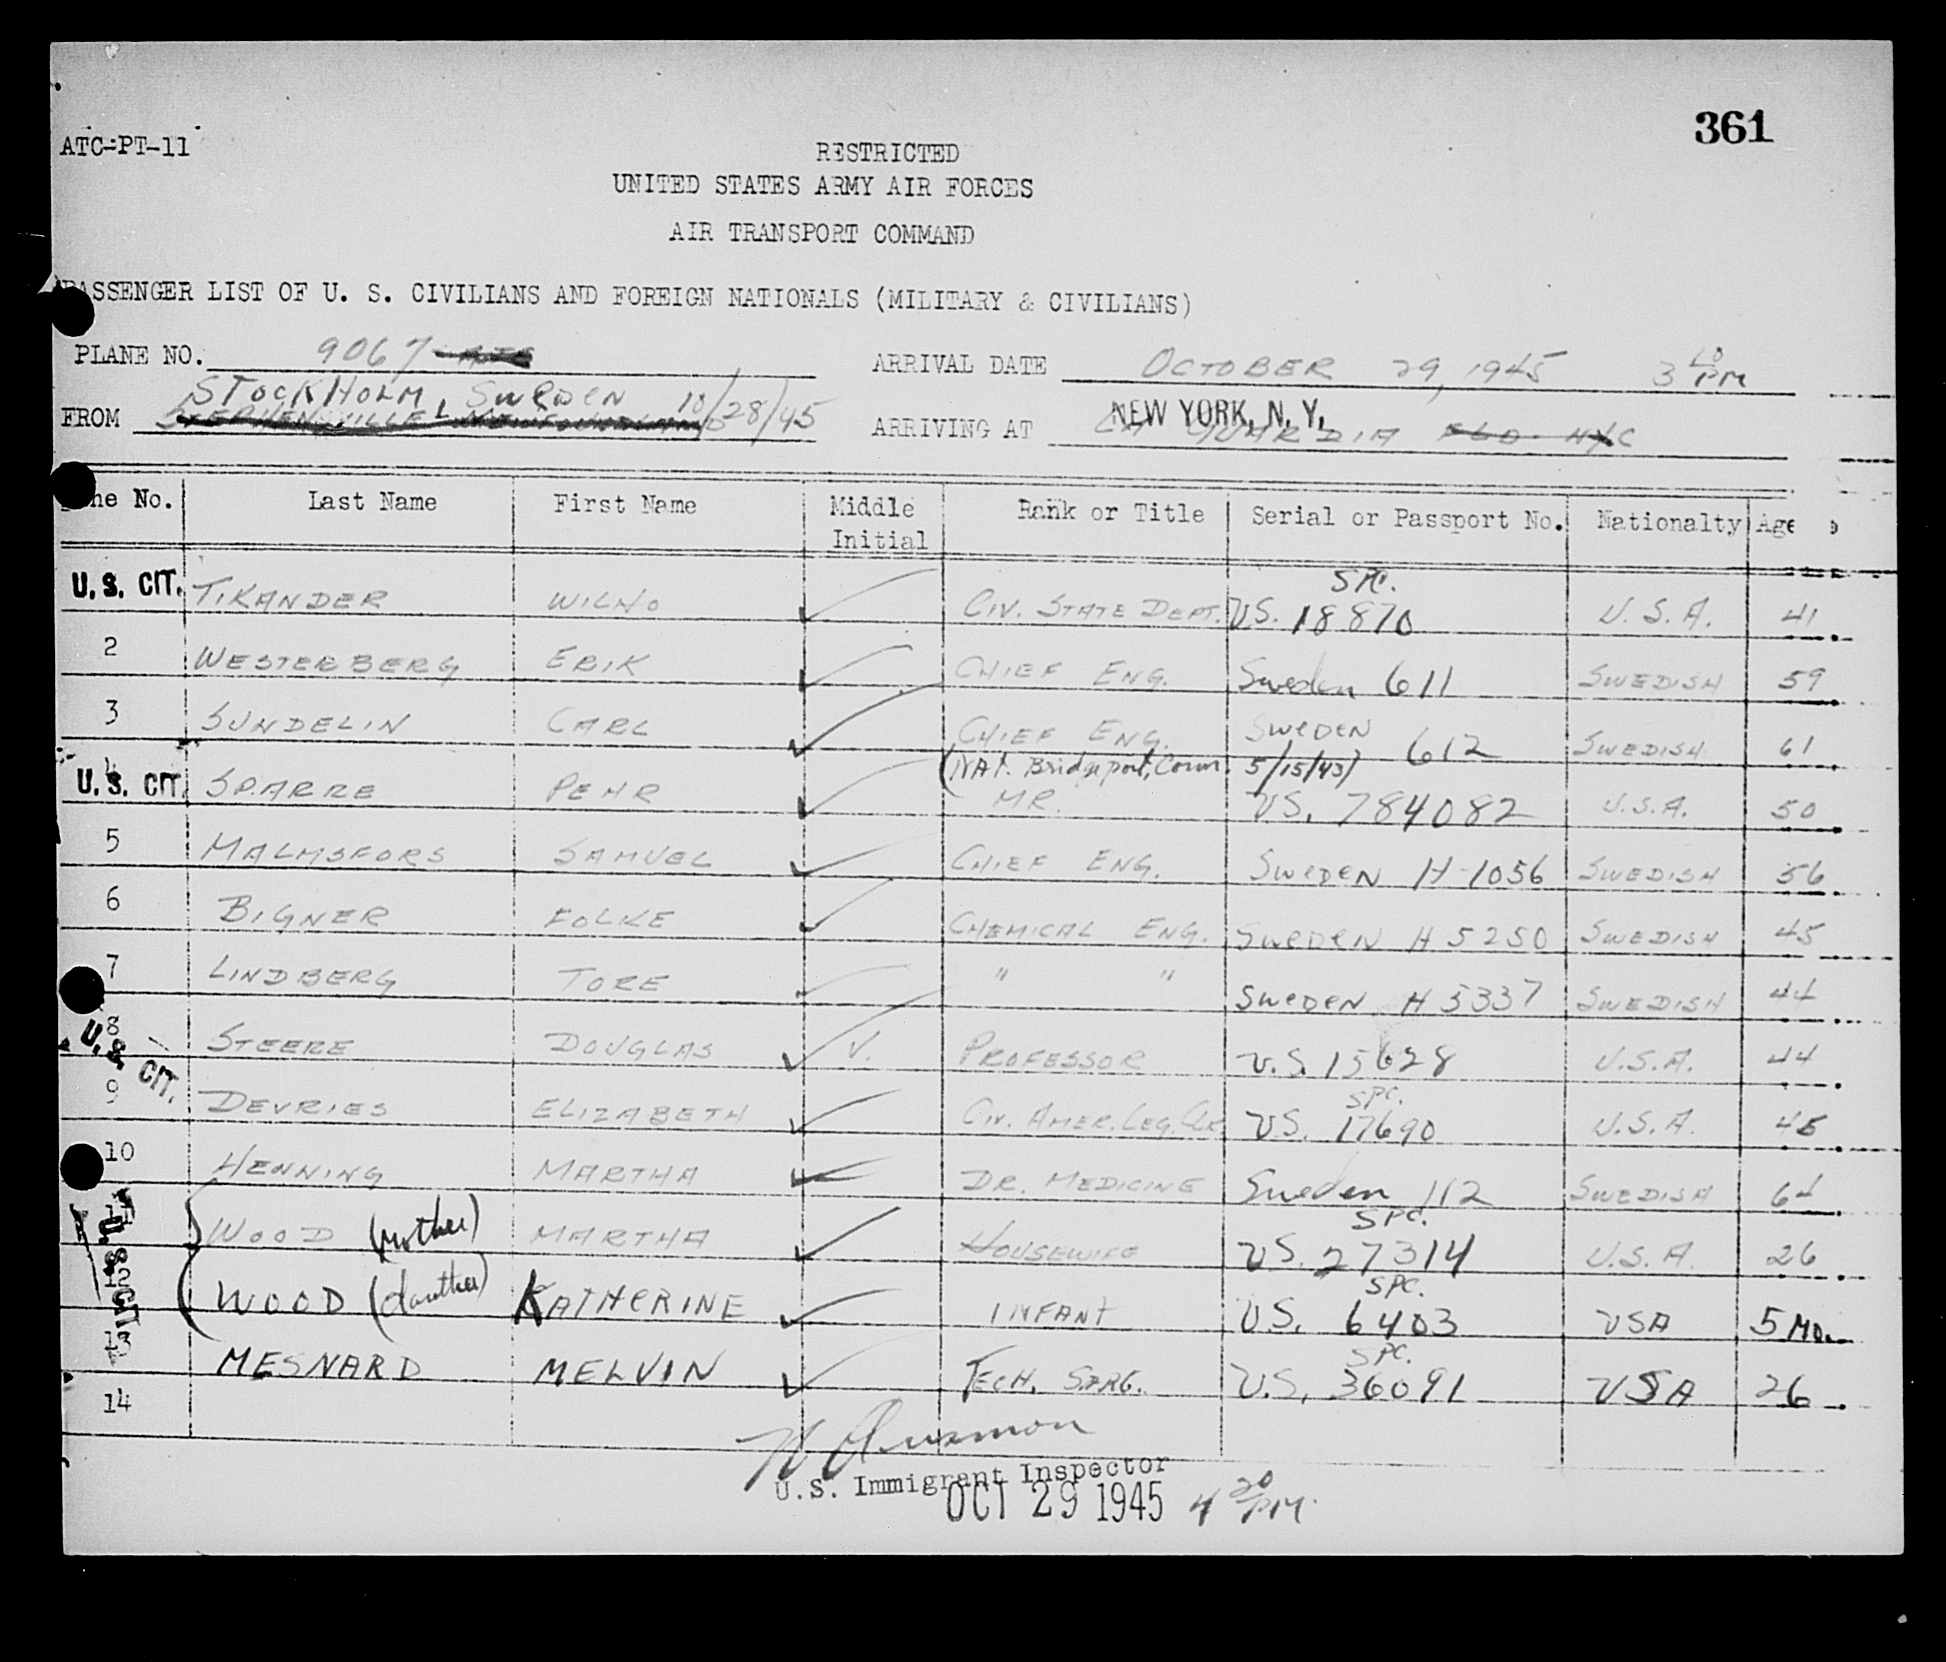 361
ATC-PT-11
RESTRICTED
UNITED STATES ARMY AIR FORCES
AIR TRANSPORT COMMAND
PASSENGER LIST OF U. S. CIVILIANS AND FOREIGN NATIONALS (MILITARY & CIVILIANS)
PLANE NO. 9067 ARRIVAL DATE OCTOBER 29, 1945 3 10 PM
STOCKHOLM, SWEDEN 10/28/45 NEW YORK, N. Y.
FROM STEPHENSVILLE, NEWFOUNDLAND ARRIVING AT LA GUARDIA FLD. NYC
Line No. Last Name First Name Middle Initial Rank or Title Serial or Passport No. Nationalty Age
SPC.
U. S. CIT. TIKANDER WILHO CIV. STATE DEPT. U.S. 18870 U.S.A. 41
2 WESTERBERG ERIK CHIEF ENG. Sweden 611 SWEDISH 59
3 SUNDELIN CARL CHIEF ENG. SWEDEN 612 SWEDISH 61
(NAT. Bridgeport, Conn. 5/15/43)
4 U. S. CIT. SPARRE PEHR MR. U.S. 784082 U.S.A. 50
5 MALMSFORS SAMUEL CHIEF ENG. SWEDEN H-1056 SWEDISH 56
6 BIGNER FOLKE CHEMICAL ENG. SWEDEN H 5250 SWEDISH 45
7 LINDBERG TORE " " SWEDEN H 5337 SWEDISH 44
8 U. S. CIT. STEERE DOUGLAS V. PROFESSOR U.S. 15628 U.S.A. 44
SPC.
9 DEVRIES ELIZABETH CIV. AMER. LEG. CLK U.S. 17690 U.S.A. 45
10 HENNING MARTHA DR. MEDICINE Sweden 112 SWEDISH 61
SPC.
11 U. S. CIT. WOOD (mother) MARTHA HOUSEWIFE U.S. 27314 U.S.A. 26
SPC.
12 WOOD (daughter) KATHERINE INFANT U.S. 6403 USA 5 MO.
SPC.
13 MESNARD MELVIN TECH. SARG. U.S. 36091 USA 26
14
U.S. Immigrant Inspector
OCT 29 1945 4 20 PM.